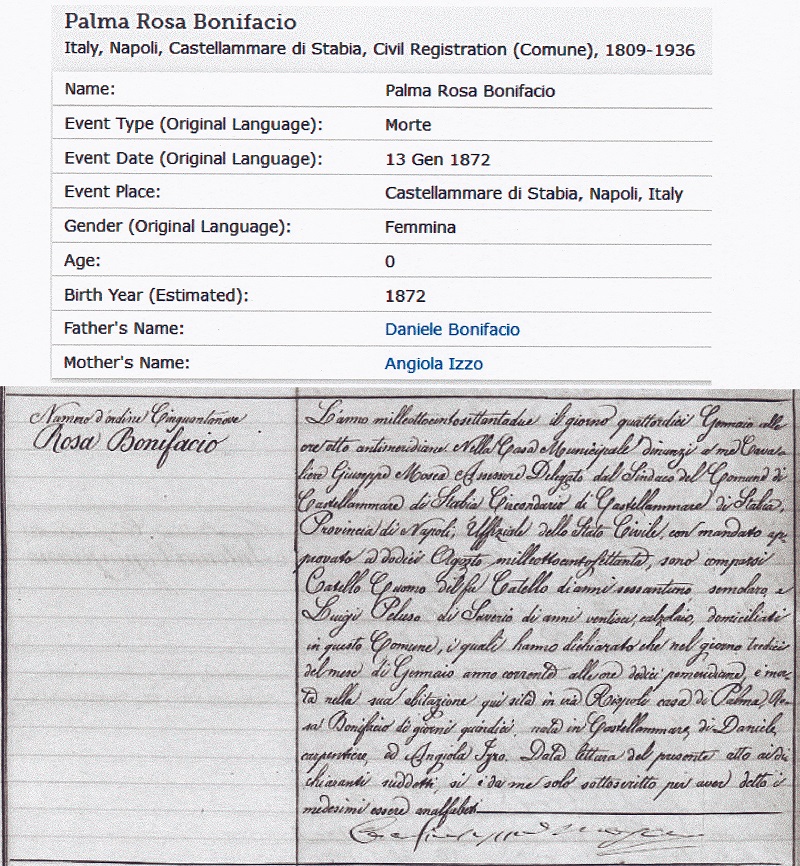 Palma Rosa Bonifacio
Italy, Napoli, Castellammare di Stabia, Civil Registration (Comune), 1809-1936
Name: Palma Rosa Bonifacio
Event Type (Original Language): Morte
Event Date (Original Language): 13 Gen 1872
Event Place: Castellammare di Stabia, Napoli, Italy
Gender (Original Language): Femmina
Age: 0
Birth Year (Estimated): 1872
Father's Name: Daniele Bonifacio
Mother's Name: Angiola Izzo
Numero d'ordine Cinquantanove
Rosa Bonifacio
L'anno milleottocentosettantadue il giorno quattordici Gennaio alle
ore otto antimeridiane Nella Casa Municipale dinanzi a me Cava-
liere Giuseppe Mosca Assessore Delegato dal Sindaco del Comune di
Castellammare di Stabia Circondario di Castellammare di Stabia,
Provincia di Napoli, Uffiziale dello Stato Civile, con mandato ap-
provato a dodici Agosto milleottocentosettanta, sono comparsi
Catello Cuomo del fu Catello di anni sessantuno, semolaro, e
Luigi Peluso di Saverio di anni ventisei, calzolaio, domiciliati
in questo Comune, i quali hanno dichiarato che nel giorno tredici
del mese di Gennaio anno corrente alle ore dodici pomeridiane, è mor-
ta nella sua abitazione qui sita in via Rispoli casa di Palma Ro-
sa Bonifacio di giorni quindici, nata in Castellammare, di Daniele,
carpentiere, ed Angiola Izzo. Data lettura del presente atto ai di-
chiaranti suddetti, si è da me solo sottoscritto per aver detto i
medesimi essere analfabeti